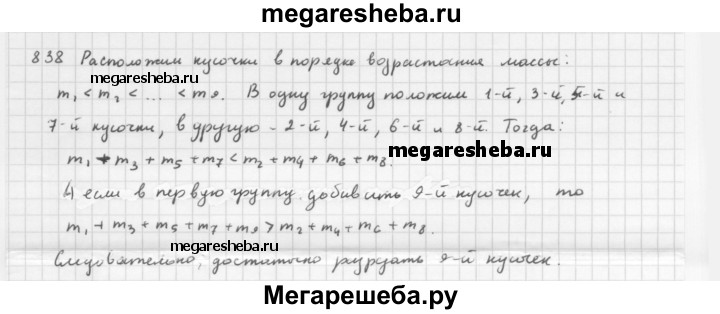 megaresheba.ru
838 Расположим кусочки в порядке возрастания массы:
megaresheba.ru
m₁ < m₂ < ... < m₉. В одну группу положим 1-й, 3-й, 5-й и
7-й кусочки, в другую - 2-й, 4-й, 6-й и 8-й. Тогда:
megaresheba.ru
m₁ + m₃ + m₅ + m₇ < m₂ + m₄ + m₆ + m₈.
А если в первую группу добавить 9-й кусочек, то
m₁ + m₃ + m₅ + m₇ + m₉ > m₂ + m₄ + m₆ + m₈.
megaresheba.ru
Следовательно, достаточно разрезать 9-й кусочек.
Мегарешеба.ру